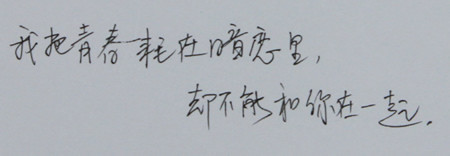 我把青春耗在暗恋里，
却不能和你在一起．